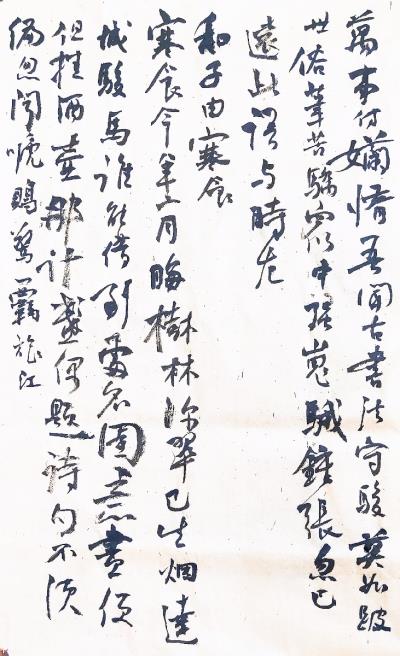 萬事付嬾惰吾聞古書法守駿莫如跛
世俗筆苦驕衆中強嵬騀鍾張忽已
遠此語与時左
和子由寒食
寒食今年二月晦樹林深翠已生烟遶
城駿馬誰能借到處名園意盡便
但挂酒壺那計盞偶題詩句不須
編忽聞嗁鵙驚羈旅江